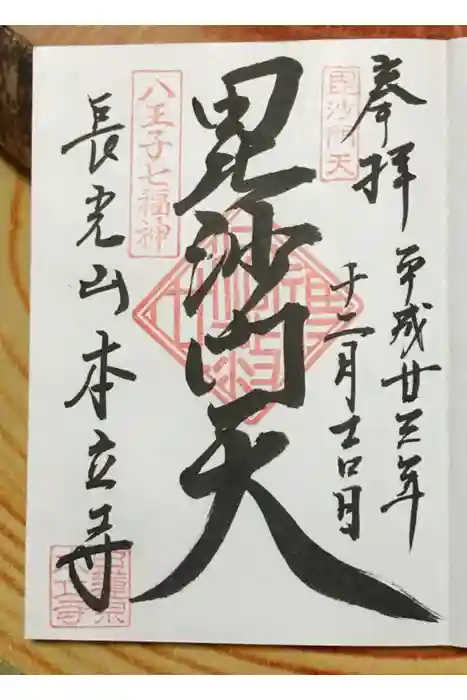 奉拝
平成廿三年
十二月
毘沙門天
毘沙門天
八王子七福神
長光山本立寺
日蓮宗
本立寺